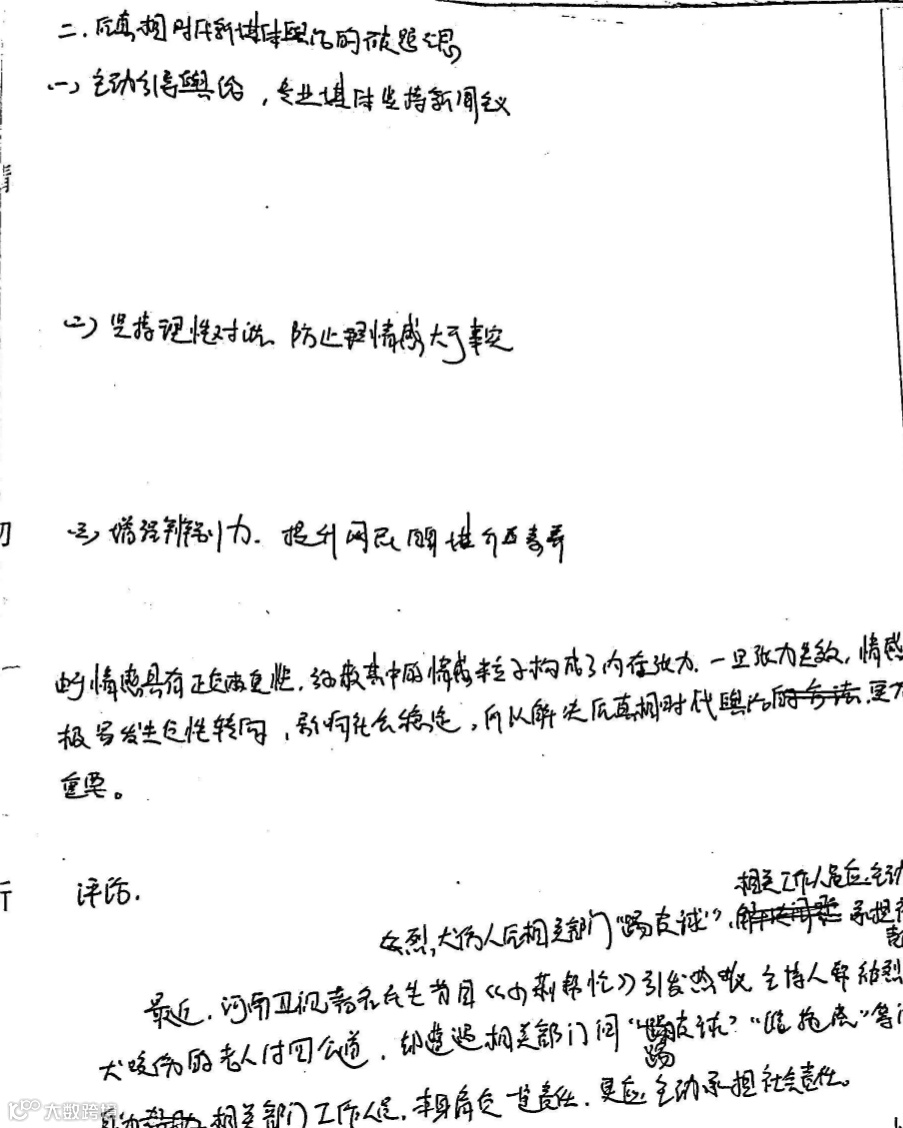 二.后真相时代新媒体舆论的破题之思
(一)主动引导舆论,专业媒体坚持新闻主义
(二)坚持理性对话、防止情感大于事实
(三)增强辨别力.提升网民媒介素养
的情感具有正负两更性.约散其中的情感粒子构成了内在张力.一旦张力失效,情感
极易发生负性转向,影响社会稳定,所以解决后真相时代舆论
重要。
评论.
相关工作人员应主动
犬伤人后相关部门"踢皮球",承担
最近.河南卫视著名民生节目《小莉帮忙》引发热议主持人帮被烈
犬咬伤的老人讨回公道.却遭遇相关部门间"踢皮球""
踢
相关部门工作人员.本身肩负责任.更应主动承担社会责任。
大数跨境